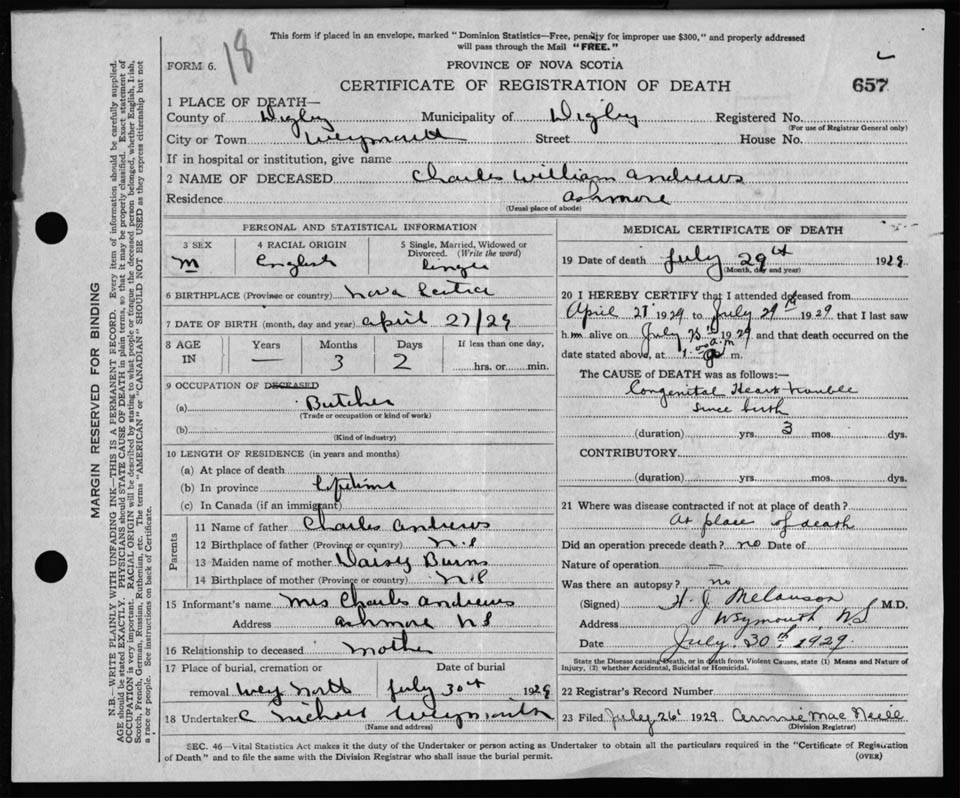 18
This form if placed in an envelope, marked "Dominion Statistics—Free, penalty for improper use $300," and properly addressed
will pass through the Mail "FREE."
FORM 6.
PROVINCE OF NOVA SCOTIA
CERTIFICATE OF REGISTRATION OF DEATH
657
1 PLACE OF DEATH—
County of Digby Municipality of Digby Registered No.
(For use of Registrar General only)
City or Town Weymouth Street House No.
If in hospital or institution, give name
2 NAME OF DECEASED Charles William Andrews
Residence Ashmore
(Usual place of abode)
PERSONAL AND STATISTICAL INFORMATION
3 SEX
M
4 RACIAL ORIGIN
English
5 Single, Married, Widowed or
Divorced. (Write the word)
Single
6 BIRTHPLACE (Province or country) Nova Scotia
7 DATE OF BIRTH (month, day and year) April 27/29
8 AGE
IN
Years
—
Months
3
Days
2
If less than one day,
hrs. or min.
9 OCCUPATION OF DECEASED
(a) Butcher
(Trade or occupation or kind of work)
(b)
(Kind of industry)
10 LENGTH OF RESIDENCE (in years and months)
(a) At place of death
(b) In province Lifetime
(c) In Canada (if an immigrant)
Parents
11 Name of father Charles Andrews
12 Birthplace of father (Province or country) N.S
13 Maiden name of mother Daisy Burns
14 Birthplace of mother (Province or country) N.S
15 Informant's name Mrs Charles Andrews
Address Ashmore NS
16 Relationship to deceased mother
17 Place of burial, cremation or
removal Wey North
Date of burial
July 30th 1929
18 Undertaker C Weymouth
(Name and address)
MEDICAL CERTIFICATE OF DEATH
19 Date of death July 29th 1929
(Month, day and year)
20 I HEREBY CERTIFY that I attended deceased from
April 27 1929 to July 29th 1929 that I last saw
h.m alive on July 1929 and that death occurred on the
date stated above, at 1.00 a.m m.
The CAUSE of DEATH was as follows:—
Congenital Heart trouble
since birth
(duration) yrs. 3 mos. dys.
CONTRIBUTORY
(duration) yrs. mos. dys.
21 Where was disease contracted if not at place of death?
At place of death
Did an operation precede death? no Date of
Nature of operation —
Was there an autopsy? no
(Signed) H. J Melanson M.D.
Address Weymouth, NS
Date July 30th, 1929
State the Disease causing Death, or in death from Violent Causes, state (1) Means and Nature of
Injury, (2) whether Accidental, Suicidal or Homicidal.
22 Registrar's Record Number
23 Filed July 26 1929 Annie MacNeill
(Division Registrar)
SEC. 46—Vital Statistics Act makes it the duty of the Undertaker or person acting as Undertaker to obtain all the particulars required in the "Certificate of Registration
of Death" and to file the same with the Division Registrar who shall issue the burial permit. (OVER)
MARGIN RESERVED FOR BINDING
N.B.—WRITE PLAINLY WITH UNFADING INK—THIS IS A PERMANENT RECORD. Every item of information should be carefully supplied.
AGE should be stated EXACTLY. PHYSICIANS should STATE CAUSE OF DEATH in plain terms, so that it may be properly classified. Exact statement of
OCCUPATION is very important. RACIAL ORIGIN will be described by stating to what people or tongue the deceased person belonged, whether English, Irish,
Scotch, French, German, Russian, Ruthenian, etc. The terms "AMERICAN" or "CANADIAN" SHOULD NOT BE USED as they express citizenship but not
a race or people. See instructions on back of Certificate.